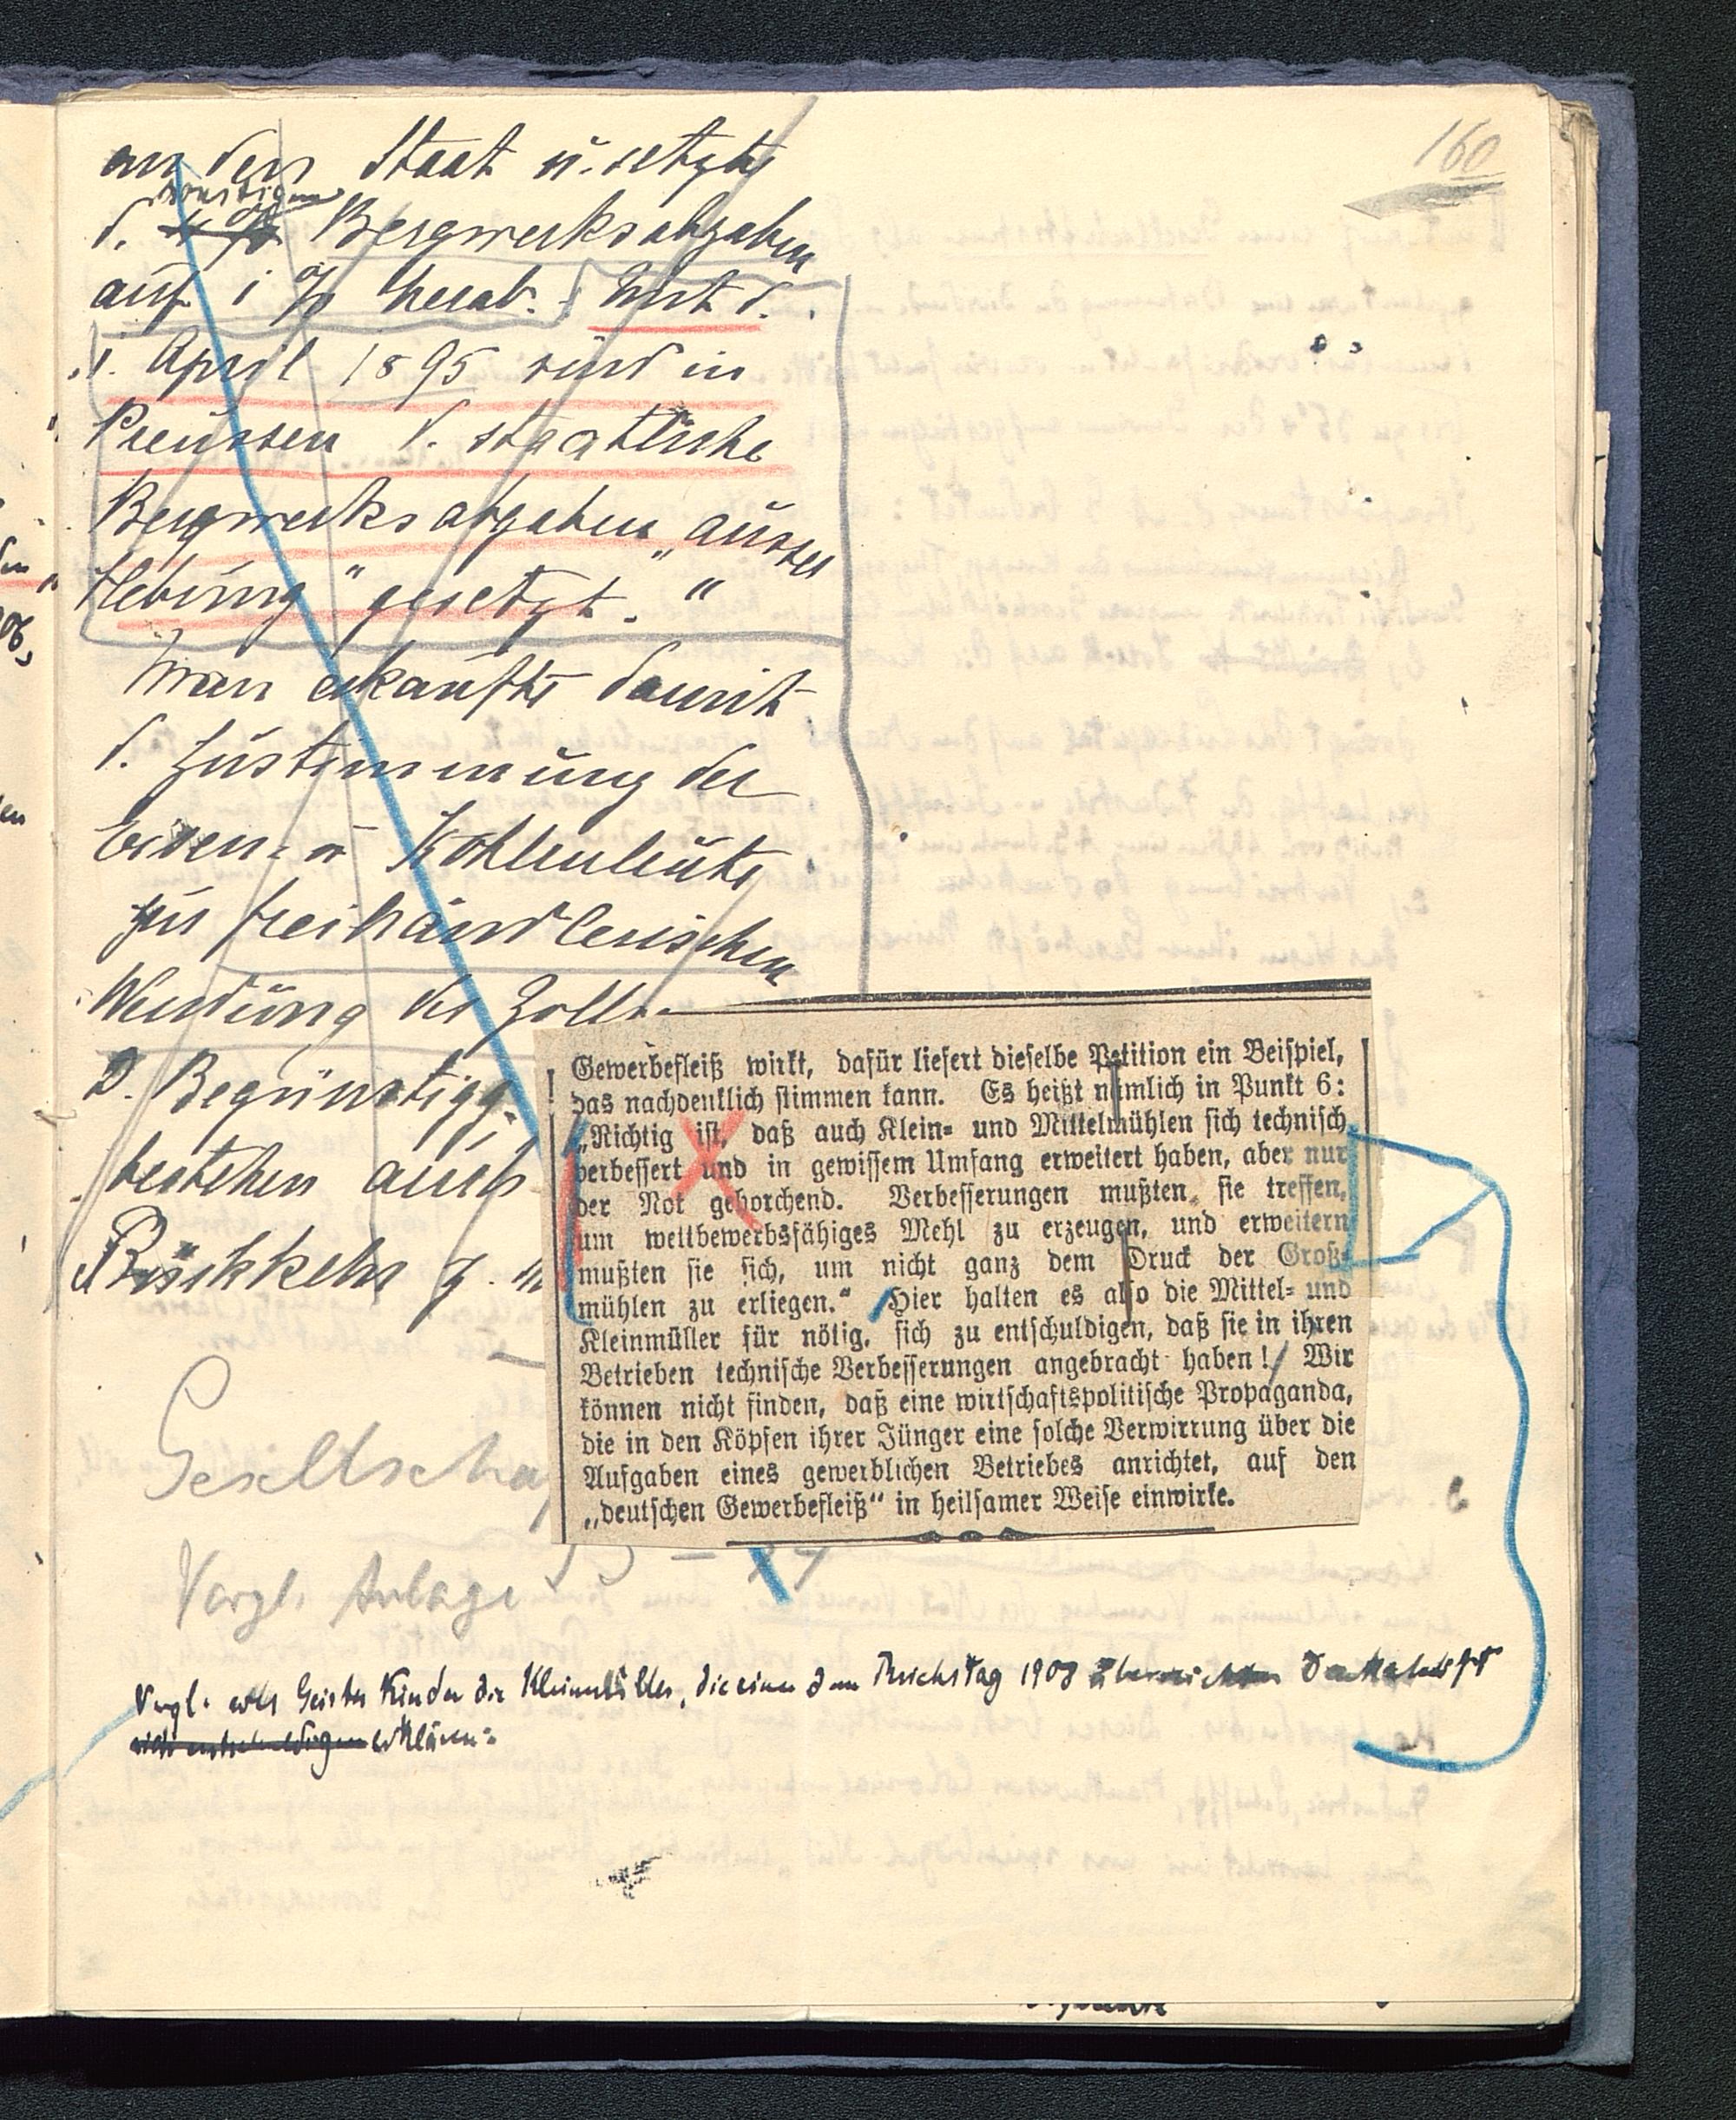 160
an den Staat u. setzte
sonstigen
d. 4 % Bergwerksabgaben
auf 1 % herab. Mit d.
1. April 1895 sind in
Preussen d. staatliche
Bergwerksabgaben „ausser
Hebung“ gesetzt."
Man erkaufte damit
d. Zustimmung der
Eisen- u Kohlenleute
zur freihändlerischen
Wendung der Zoll
D. Begünstigg.
bestehen auch
Rückkehr z.
Gewerbefleiß wirkt, dafür liefert dieselbe Petition ein Beispiel,
das nachdenklich stimmen kann. Es heißt nämlich in Punkt 6:
„Richtig ist, daß auch Klein- und Mittelmühlen sich technisch
verbessert und in gewissem Umfang erweitert haben, aber nur
der Not gehorchend. Verbesserungen mußten sie treffen,
um wettbewerbsfähiges Mehl zu erzeugen, und erweitern
mußten sie sich, um nicht ganz dem Druck der Groß-
mühlen zu erliegen.“ Hier halten es also die Mittel- und
Kleinmüller für nötig, sich zu entschuldigen, daß sie in ihren
Betrieben technische Verbesserungen angebracht haben! Wir
können nicht finden, daß eine wirtschaftspolitische Propaganda,
die in den Köpfen ihrer Jünger eine solche Verwirrung über die
Aufgaben eines gewerblichen Betriebes anrichtet, auf den
„deutschen Gewerbefleiß“ in heilsamer Weise einwirke.
Gesellscha
Vergl. Anlage
Vergl. wes Geistes Kinder die Kleinmüller, die einer dem Reichstag 1908
sich entschuldigen erklären: